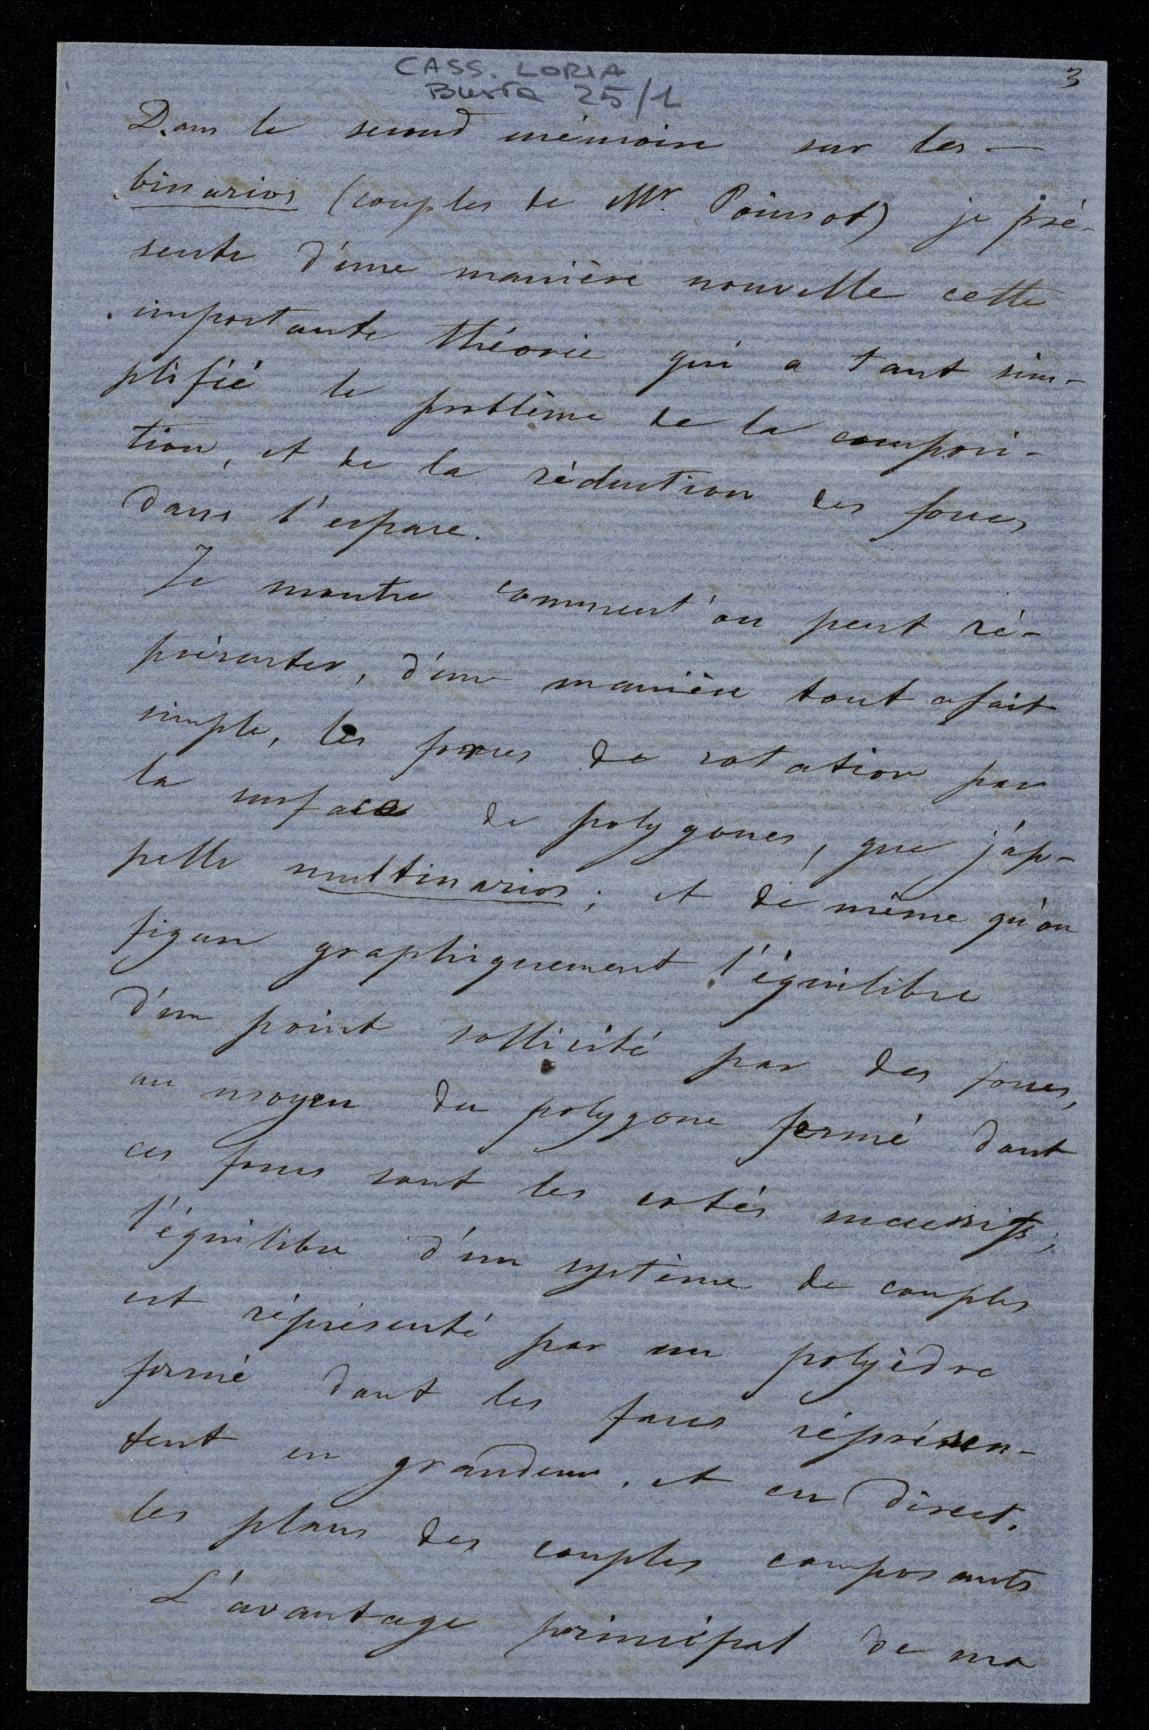 CASS. LORIA
Busta 25/1
3
Dans le second mémoire sur les —
binarios (couples de Mr. Poinsot) je pré-
sente d'une manière nouvelle cette
importante théorie qui a tant sim-
plifié le problème de la composi-
tion, et de la réduction des forces
dans l'espace.
Je montre comment'on peut ré-
présenter, d'une manière tout afait
simple, les forces de rotation par
la surface de polygones, que j'ap-
pelle multinarios; et de même qu'on
figure graphiquement l'équilibre
d'un point sollicité par des forces,
au moyen du polygone fermé dont
ces forces sont les cotés
l'équilibre d'un système de couples
est réprésenté par un polyèdre
fermé dont les faces réprésen-
tent en grandeur, et en direct.
les plans des couples composants
L'avantage principal de ma